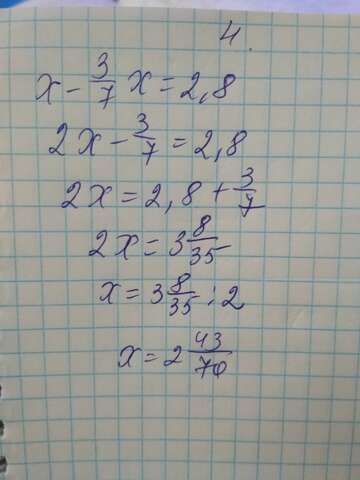 4.
x - 3/7 x = 2,8
2x - 3/7 = 2,8
2x = 2,8 + 3/7
2x = 3 8/35
x = 3 8/35 : 2
x = 2 43/70